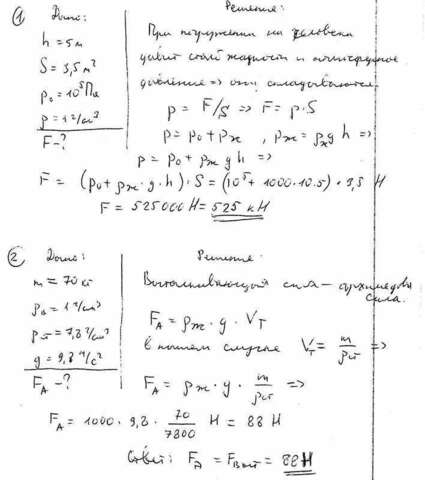 ① Дано:
h = 5 м
S = 3,5 м²
p₀ = 10⁵ Па
ρ = 1 г/см³
F - ?
Решение:
При погружении на человека
давит столб жидкости и атмосферное
давление => они складываются.
p = F/S => F = p·S
p = p₀ + pж , pж = ρж g h =>
p = p₀ + ρж g h =>
F = (p₀ + ρж · g · h) · S = (10⁵ + 1000·10·5) · 3,5 Н
F = 525000 Н = 525 кН
② Дано:
m = 70 кг
ρв = 1 г/см³
ρст = 7,8 г/см³
g = 9,8 м/с²
FА - ?
Решение:
Выталкивающая сила – архимедова
сила.
FА = ρж · g · Vт
В нашем случае Vт = m/ρст =>
FА = ρж · g · m/ρст =>
FА = 1000 · 9,8 · 70/7800 Н = 88 Н
Ответ: FА = Fвыт = 88 Н